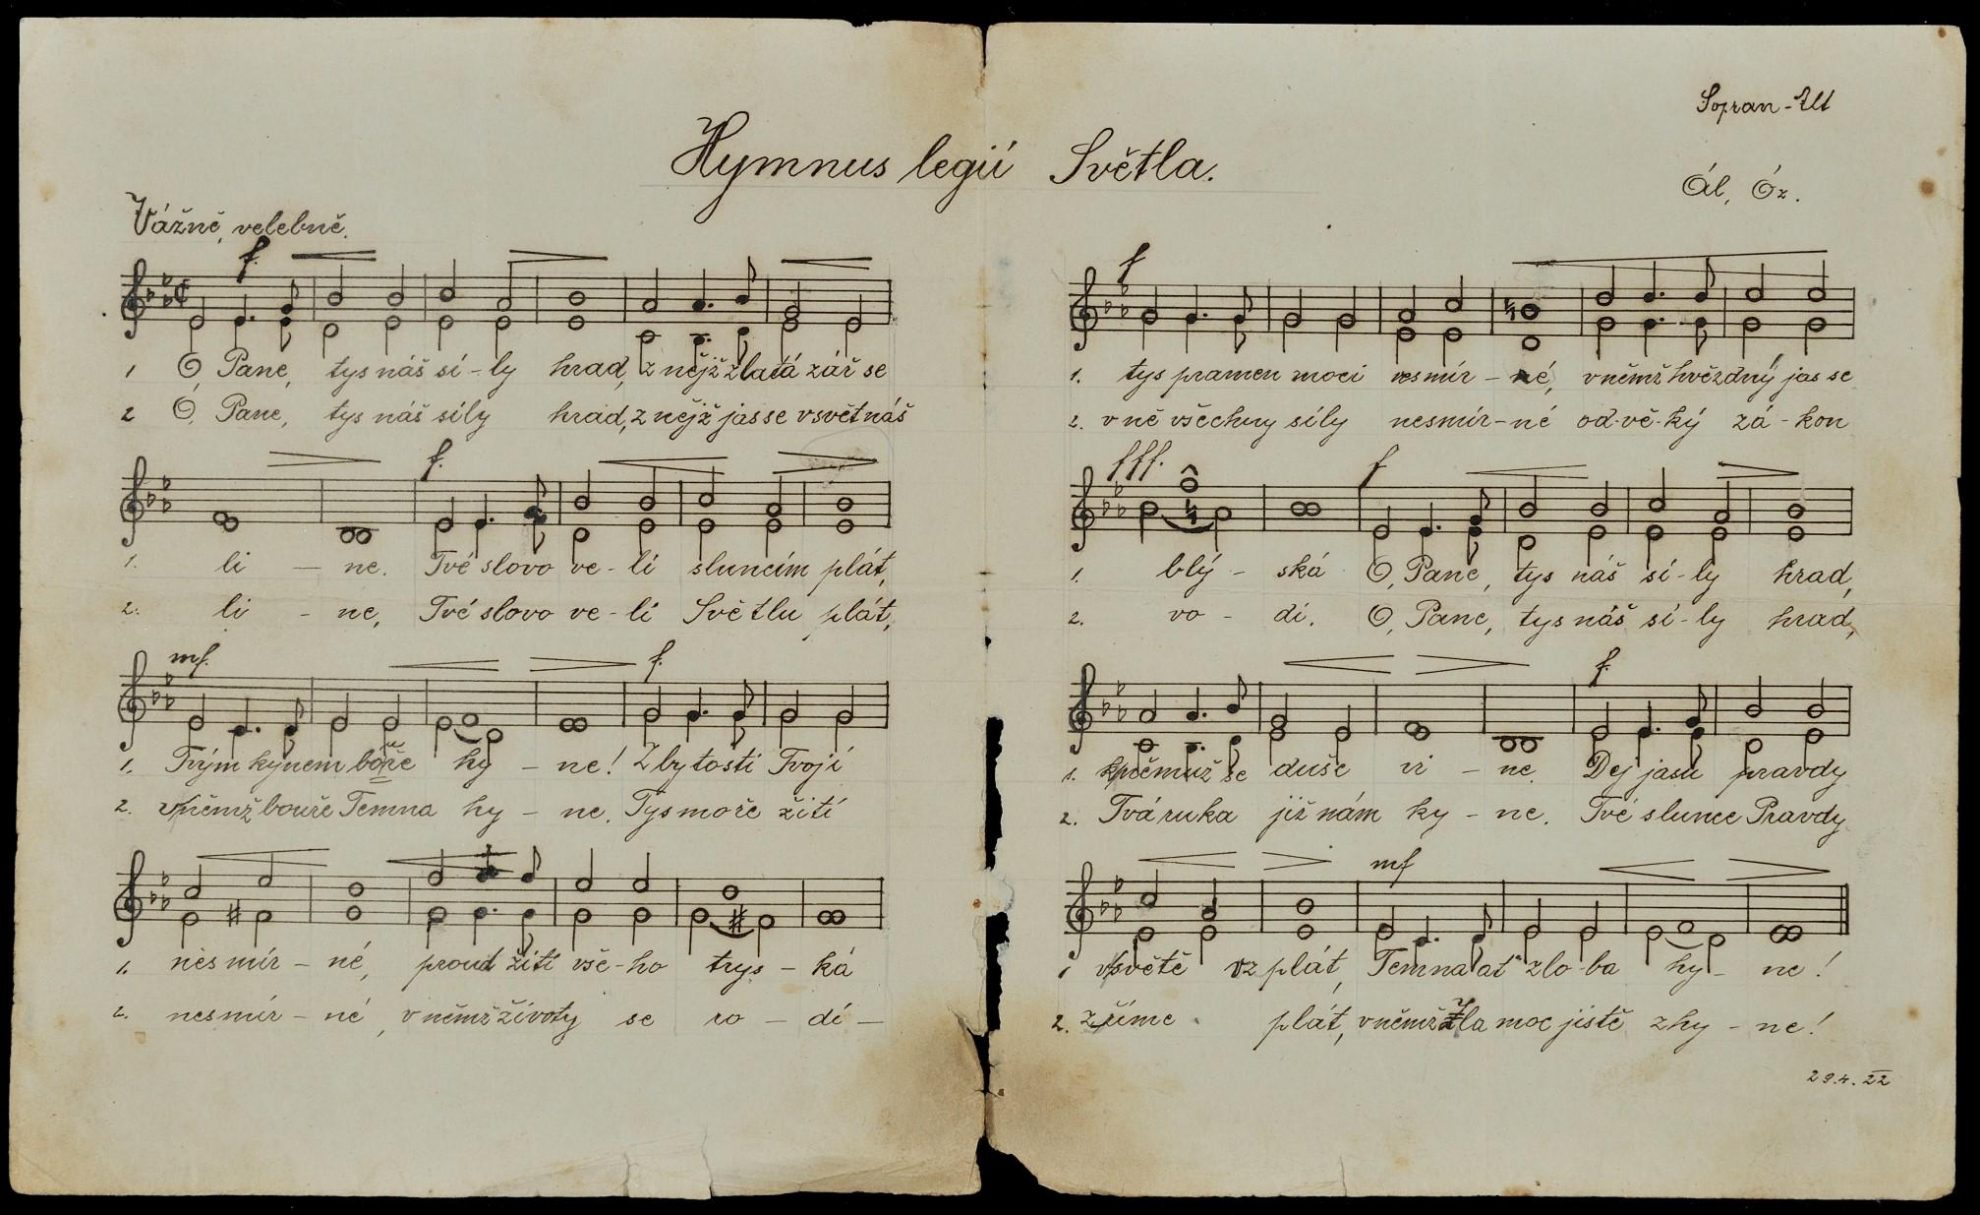 Sopran-Alt
Hymnus legií Světla.
Ál, Óz.
Vážně, velebně.
f.
1 Ó, Pane, tys náš sí-ly hrad, z nějž zlatá zář se
2 Ó, Pane, tys náš síly hrad, z nějž jas se v svět náš
f.
1. li - ne. Tvé slovo ve-lí sluncím plát,
2. li - ne, Tvé slovo ve-lí Světlu plát,
mf. f.
1. Tvým kynem boře hy - ne! Z bytosti Tvojí
2. v němž bouře Temna hy - ne. Tys moře žití
1. nesmír - né, proud žití vše-ho trys - ká
2. nesmír - né, v němž životy se ro - dí -
f
1. tys pramen moci nesmír - né, v němž hvězdný jas se
2. v ně všechny síly nesmír-né od-vě-ký zá-kon
fff. f
1. blý - ská Ó, Pane, tys náš sí-ly hrad,
2. vo - dí. Ó, Pane, tys náš sí-ly hrad,
f.
1. k němuž se duše vi - ne. Dej jasu pravdy
2. Tvá ruka již nám ky - ne. Tvé slunce Pravdy
mf
1 v světě vzplát, Temna ať zlo-ba hy - ne!
2. zříme plát, v němž Zla moc jistě zhy - ne!
29.4.22